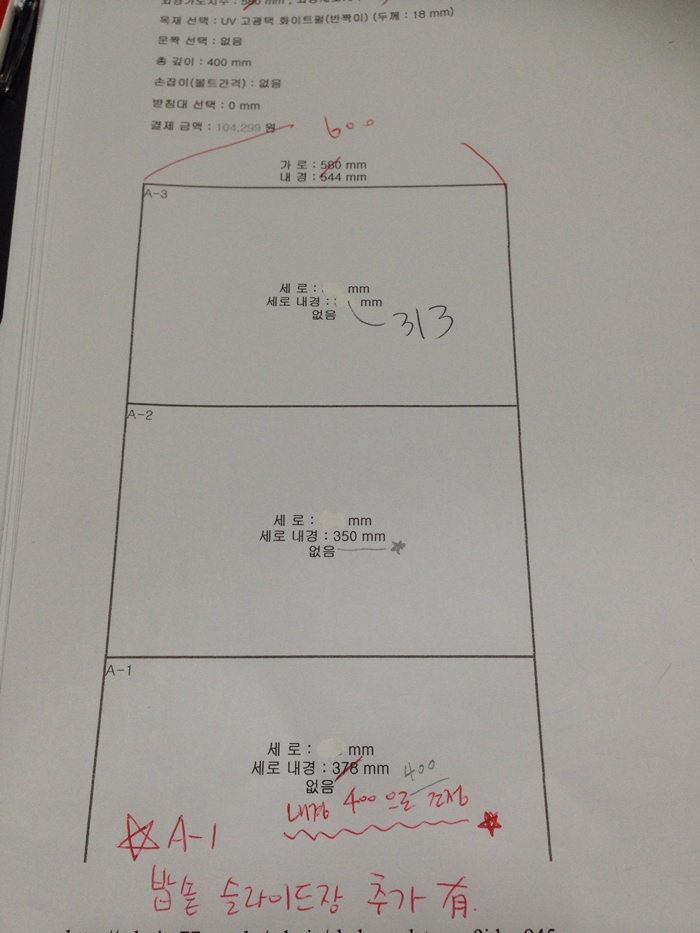 목재 선택 : UV 고광택 화이트펄(반짝이) (두께 : 18 mm)
문짝 선택 : 없음
총 깊이 : 400 mm
손잡이(볼트간격) : 없음
받침대 선택 : 0 mm
결제 금액 : 104,299 원
600
가 로 : 580 mm
내 경 : 544 mm
A-3
세 로 : mm
세로 내경 : mm
없음
313
A-2
세 로 : mm
세로 내경 : 350 mm
없음
A-1
세 로 : mm
세로 내경 : 378 mm
400
없음
내경 400 으로 조정
A-1
밥솥 슬라이드장 추가 有.